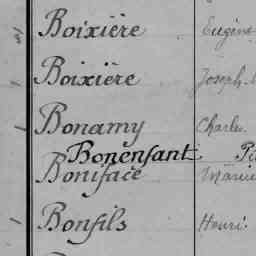 Boixière Eugène
Boixière Joseph
Bonamy Charles
Bonenfant
Boniface Marie
Bonfils Henri